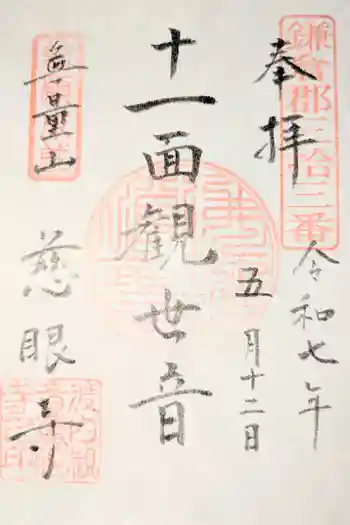 鎌倉郡三拾三番
奉拝
令和七年
五月十二日
十一面観世音
無量山
慈眼寺